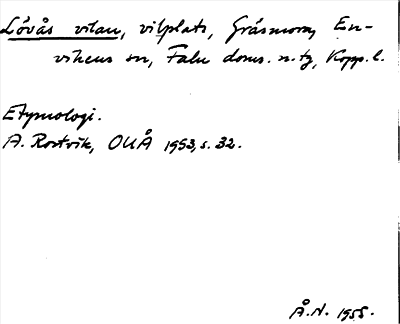 Lövås vilan, vilplats, Gråsmoran, En-
vikens sn, Falu doms. n. tg, Kopp. l.
Etymologi.
A. Rostvik, OUÅ 1953, s. 32.
Å.N. 1955.